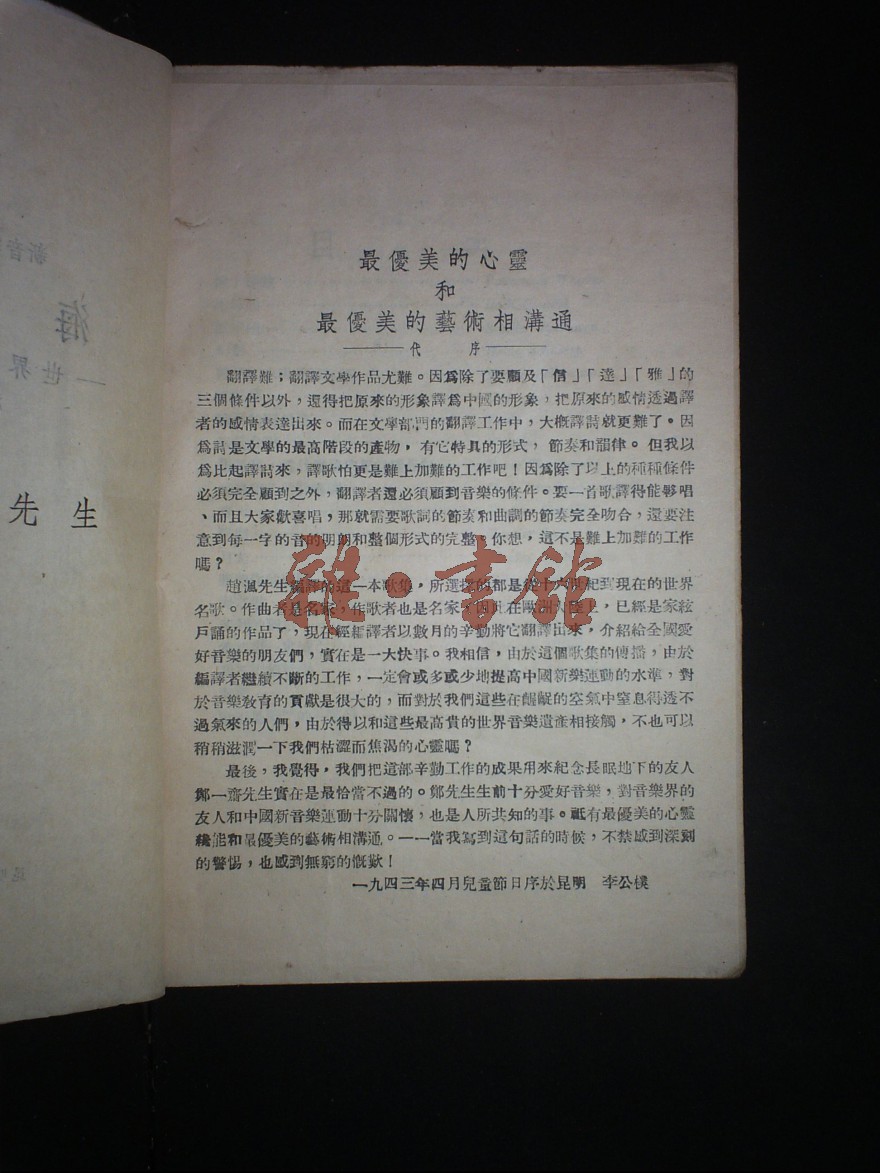 最優美的心靈
和
最優美的藝術相溝通
——代 序——
翻譯難；翻譯文學作品尤難。因爲除了要顧及「信」「達」「雅」的
三個條件以外，還得把原來的形象譯爲中國的形象，把原來的感情透過譯
者的感情表達出來。而在文學部門的翻譯工作中，大概譯詩就更難了。因
爲詩是文學的最高階段的產物，有它特具的形式，節奏和韻律。但我以
爲比起譯詩來，譯歌怕更是難上加難的工作吧！因爲除了以上的種種條件
必須完全顧到之外，翻譯者還必須顧到音樂的條件。要一首歌譯得能夠唱
、而且大家歡喜唱，那就需要歌詞的節奏和曲調的節奏完全吻合，還要注
意到每一字的音的明朗和整個形式的完整。你想，這不是難上加難的工作
嗎？
趙渢先生編譯的這一本歌集，所選擇的都是從十六世紀到現在的世界
名歌。作曲者是名家，作歌者也是名家，而且在歐洲大陸上，已經是家絃
戶誦的作品了，現在經編譯者以數月的辛勤將它翻譯出來，介紹給全國愛
好音樂的朋友們，實在是一大快事。我相信，由於這個歌集的傳播，由於
編譯者繼續不斷的工作，一定會或多或少地提高中國新樂運動的水準，對
於音樂教育的貢獻是很大的，而對於我們這些在齷齪的空氣中窒息得透不
過氣來的人們，由於得以和這些最高貴的世界音樂遺產相接觸，不也可以
稍稍滋潤一下我們枯澀而焦渴的心靈嗎？
最後，我覺得，我們把這部辛勤工作的成果用來紀念長眠地下的友人
鄭一齋先生實在是最恰當不過的。鄭先生生前十分愛好音樂，對音樂界的
友人和中國新音樂運動十分關懷，也是人所共知的事。祗有最優美的心靈
纔能和最優美的藝術相溝通。——當我寫到這句話的時候，不禁感到深刻
的警惕，也感到無窮的慨歎！
一九四三年四月兒童節日序於昆明 李公樸
先生
海
世界
新音
雜·書館